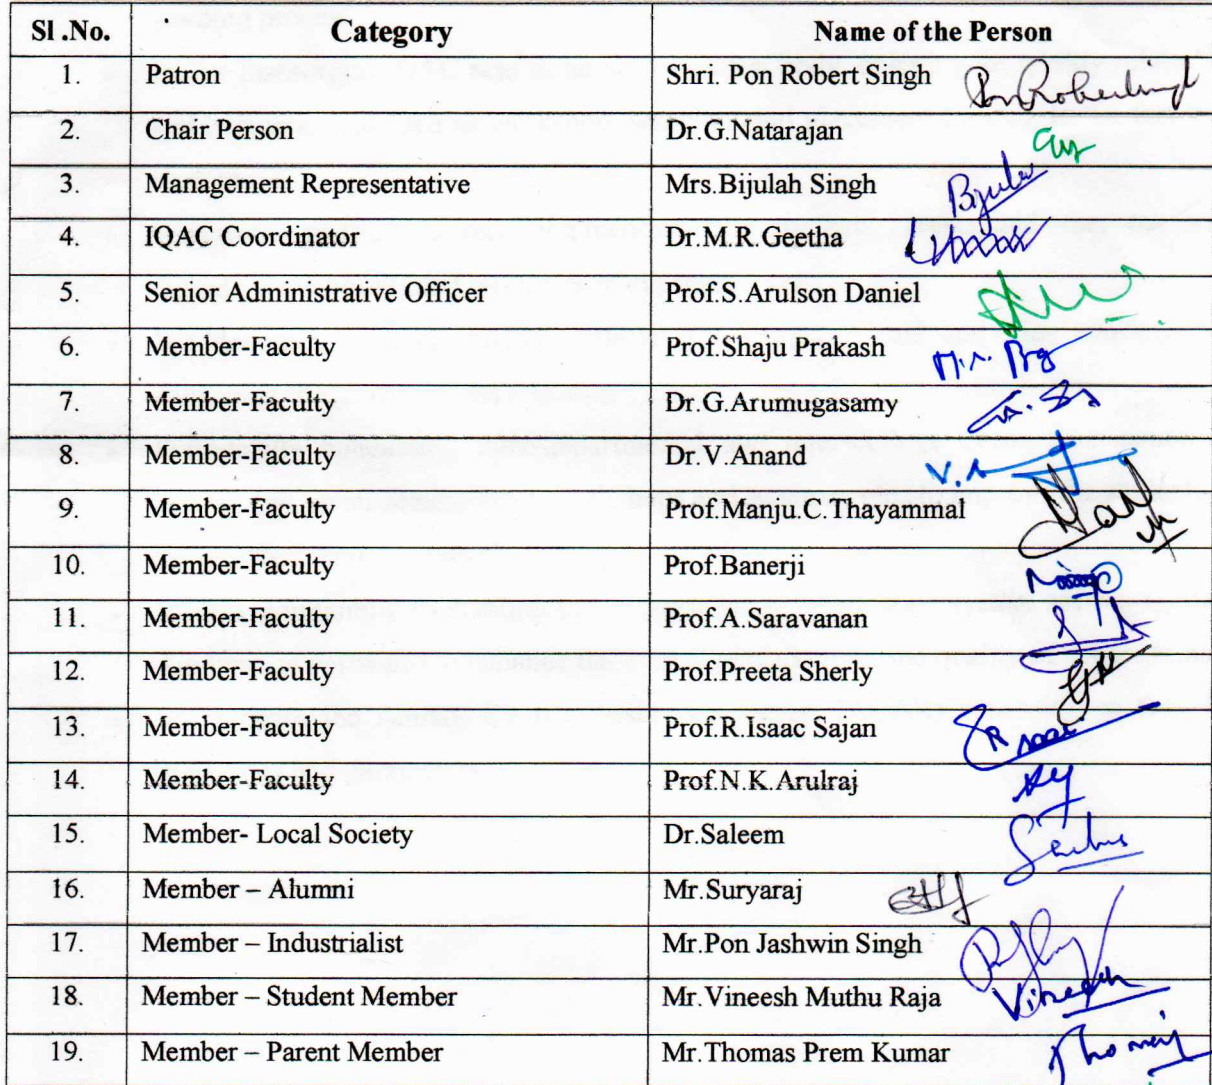 Sl .No. Category Name of the Person
1. Patron Shri. Pon Robert Singh
2. Chair Person Dr.G.Natarajan
3. Management Representative Mrs.Bijulah Singh
4. IQAC Coordinator Dr.M.R.Geetha
5. Senior Administrative Officer Prof.S.Arulson Daniel
6. Member-Faculty Prof.Shaju Prakash
7. Member-Faculty Dr.G.Arumugasamy
8. Member-Faculty Dr.V.Anand
9. Member-Faculty Prof.Manju.C.Thayammal
10. Member-Faculty Prof.Banerji
11. Member-Faculty Prof.A.Saravanan
12. Member-Faculty Prof.Preeta Sherly
13. Member-Faculty Prof.R.Isaac Sajan
14. Member-Faculty Prof.N.K.Arulraj
15. Member- Local Society Dr.Saleem
16. Member – Alumni Mr.Suryaraj
17. Member – Industrialist Mr.Pon Jashwin Singh
18. Member – Student Member Mr.Vineesh Muthu Raja Vineesh
19. Member – Parent Member Mr.Thomas Prem Kumar Thomas